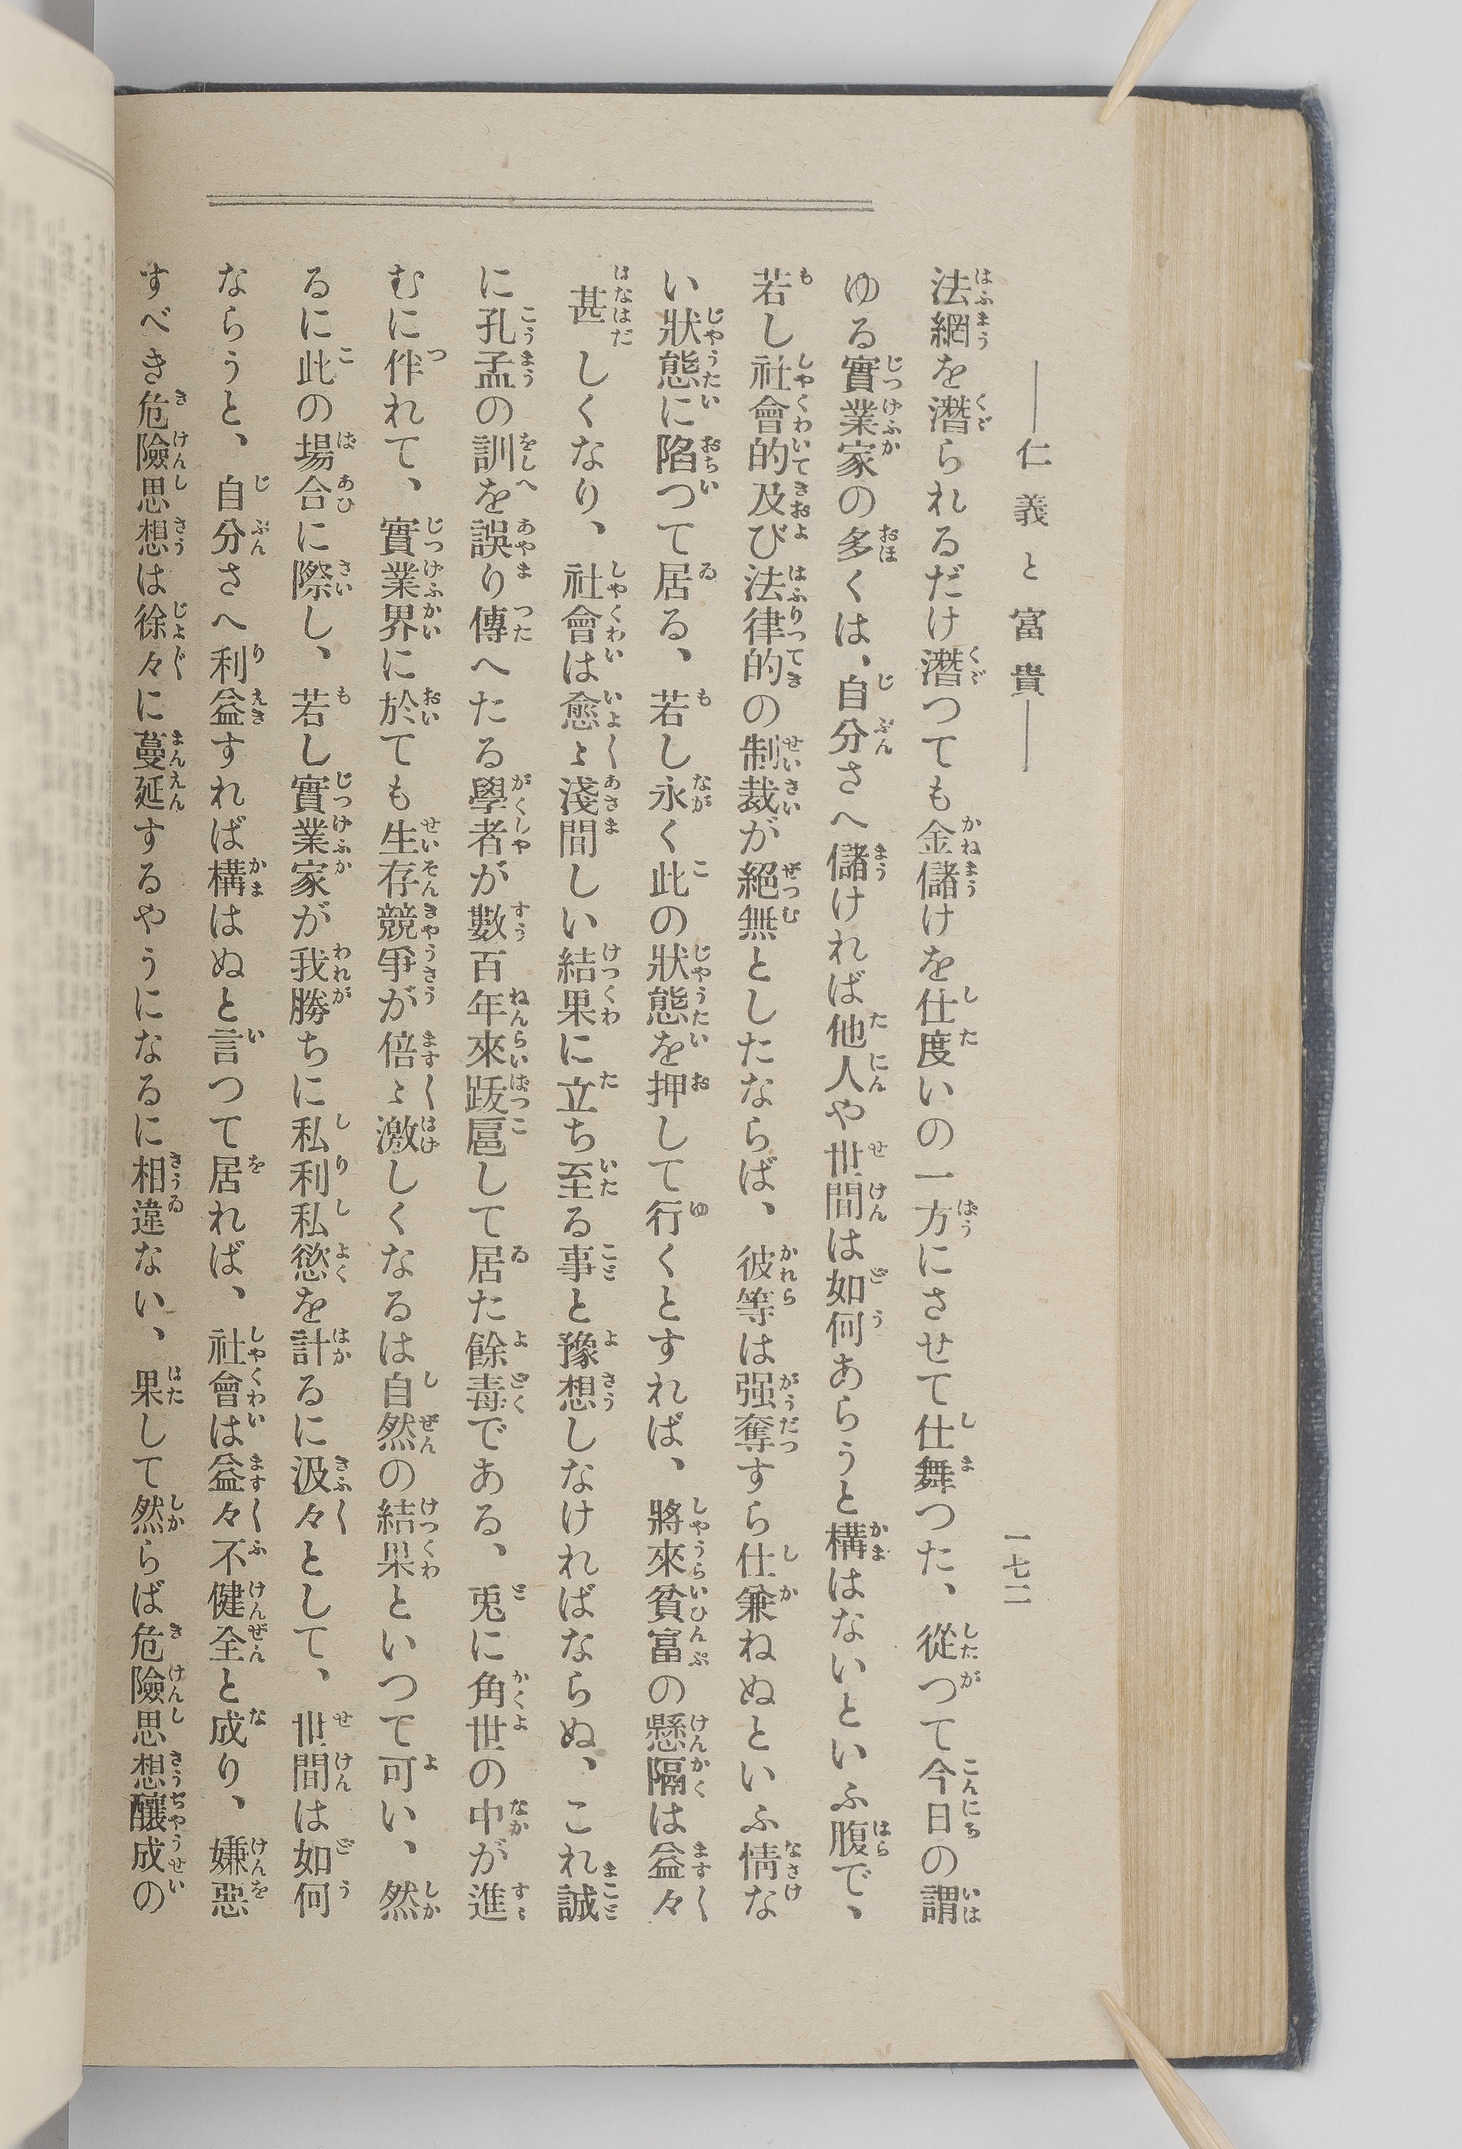 ――仁義と富貴――
一七二
法網を潛られるだけ潛つても金儲けを仕度いの一方にさせて仕舞つた、從つて今日の謂
ゆる實業家の多くは、自分さへ儲ければ他人や世間は如何あらうと構はないといふ腹で、
若し社會的及び法律的の制裁が絕無としたならば、彼等は强奪すら仕兼ねぬといふ情な
い狀態に陷つて居る、若し永く此の狀態を押して行くとすれば、將來貧富の懸隔は益々
甚しくなり、社會は愈〻淺間しい結果に立ち至る事と豫想しなければならぬ、これ誠
に孔孟の訓を誤り傳へたる學者が數百年來跋扈して居た餘毒である、兎に角世の中が進
むに伴れて、實業界に於ても生存競爭が倍〻激しくなるは自然の結果といつて可い、然
るに此の場合に際し、若し實業家が我勝ちに私利私慾を計るに汲々として、世間は如何
ならうと、自分さへ利益すれば構はぬと言つて居れば、社會は益々不健全と成り、嫌惡
すべき危險思想は徐々に蔓延するやうになるに相違ない、果して然らば危險思想釀成の